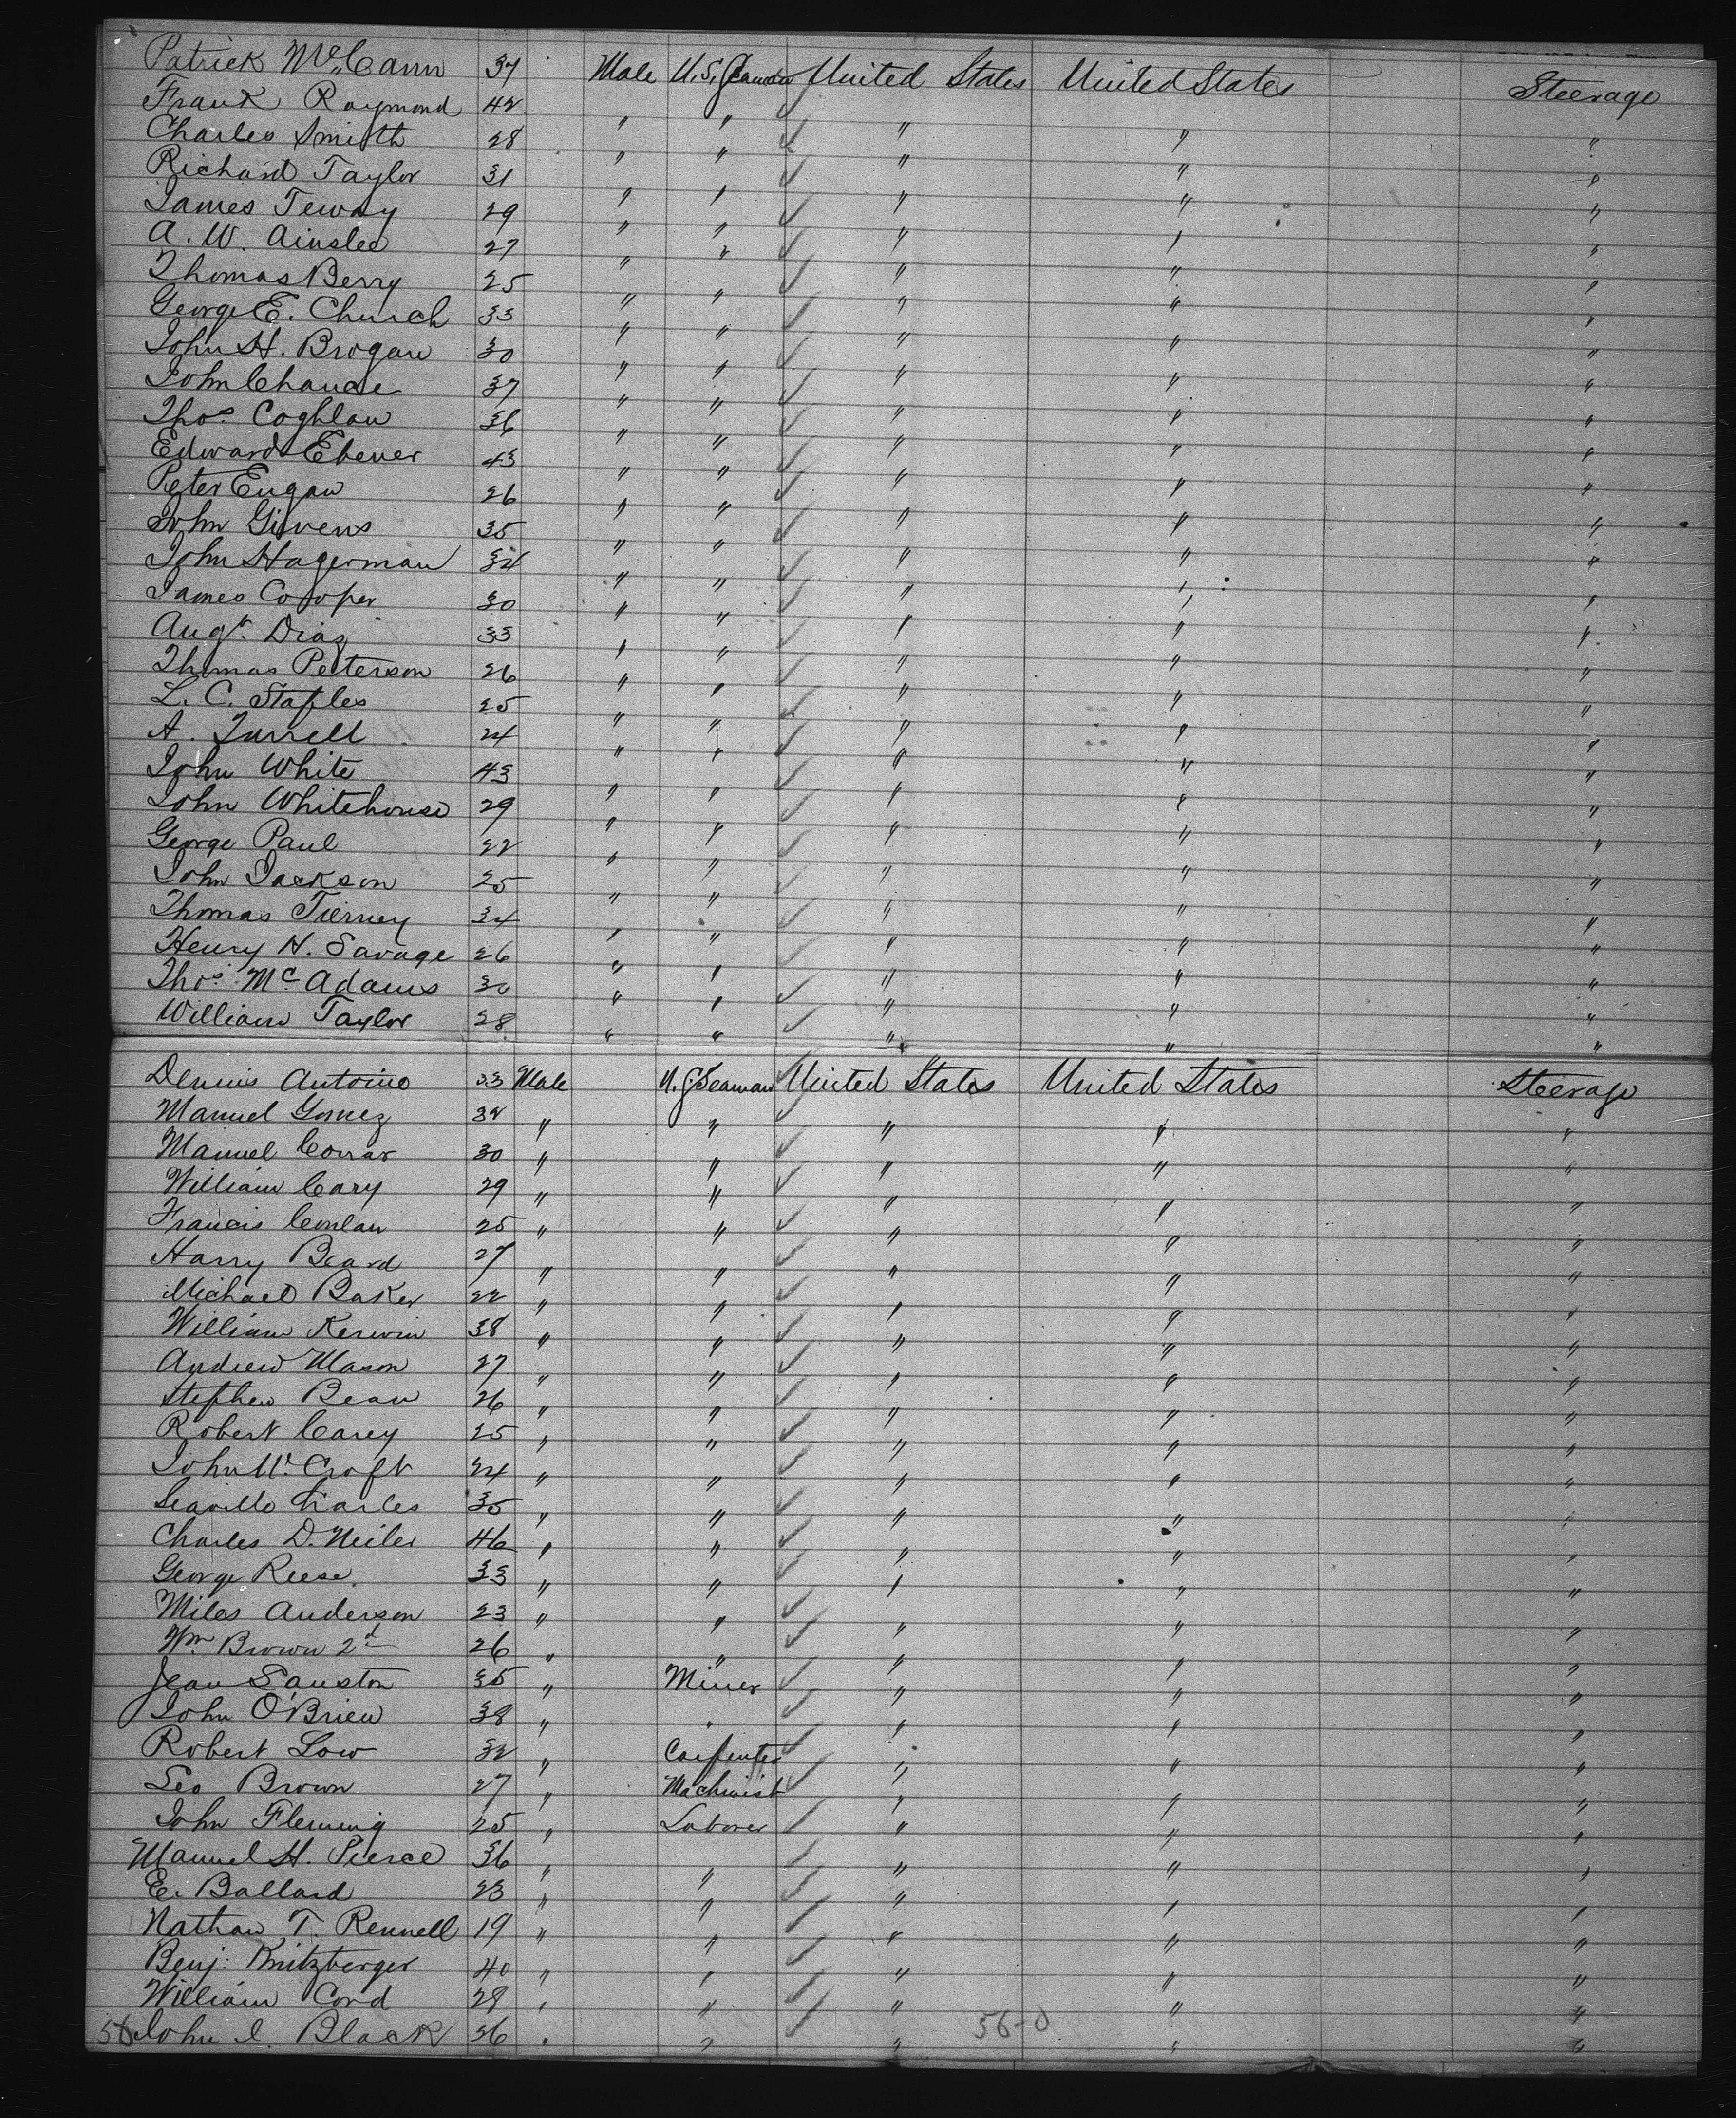 Patrick McCann 37 Male U.S. Seaman United States United States Steerage
Frank Raymond 42 " " " " "
Charles Smith 28 " " " " "
Richard Taylor 31 " " " " "
James Teway 29 " " " " "
A. W. Ainslee 27 " " " " "
Thomas Berry 25 " " " " "
George E. Church 33 " " " " "
John H. Brogan 30 " " " " "
John Chance 37 " " " " "
Thos. Coghlan 36 " " " " "
Edward Ebener 43 " " " " "
Peter Eugan 26 " " " " "
John Givens 35 " " " " "
John Hagerman 34 " " " " "
James Cooper 30 " " " " "
Augt. Diaz 33 " " " " "
Thomas Peterson 26 " " " " "
L. C. Staples 25 " " " " "
A. Turrell 24 " " " " "
John White 43 " " " " "
John Whitehouse 29 " " " " "
George Paul 22 " " " " "
John Jackson 25 " " " " "
Thomas Tierney 34 " " " " "
Henry H. Savage 26 " " " " "
Thos. McAdams 30 " " " " "
William Taylor 28 " " " " "
Dennis Antoine 33 Male U.S. Seaman United States United States Steerage
Manuel Gomez 32 " " " " "
Manuel Corrar 30 " " " " "
William Cary 29 " " " " "
Francis Conlan 25 " " " " "
Harry Beard 27 " " " " "
Michael Baker 22 " " " " "
William Kerwin 38 " " " " "
Andrew Mason 27 " " " " "
Stephen Bean 26 " " " " "
Robert Carey 25 " " " " "
John W. Croft 24 " " " " "
Charles 35 " " " " "
Charles D. Neiler 46 " " " " "
George Reese 33 " " " " "
Miles Anderson 23 " " " " "
Wm Brown 2d 26 " " " " "
Jean Sauston 35 " Miner " " "
John O'Brien 38 " " " " "
Robert Low 32 " Carpenter " " "
Leo Brown 27 " Machinist " " "
John Fleming 25 " Laborer " " "
Manuel H. Pierce 36 " " " " "
E. Ballard 23 " " " " "
Nathan T. Rennell 19 " " " " "
Benj. Kritzberger 40 " " " " "
William Cord 28 " " " " "
56 John J. Black 26 " " " 56-0 " "